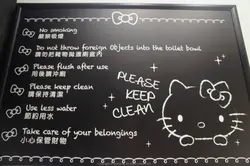 No smoking
嚴禁吸煙
Do not throw foreign Objects into the toilet bowl
請勿把雜物拋進廁盆內
Please flush after use
用後請沖廁
Please keep clean
請保持清潔
Use less water
節約用水
Take care of your belongings
小心保管財物
PLEASE
KEEP
CLEAN